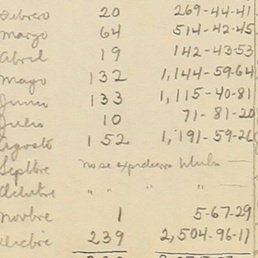 Febrero 20 269-44-41
Marzo 64 514-42-45
Abril 19 142-43-53
Mayo 132 1,144-59-64
Junio 133 1,115-40-81
Julio 10 71-81-20
Agosto 152 1,191-59-26
Septbre no se expidieron
Octubre " " " "
Novbre 1 5-67-29
Dicbre 239 2,504-96-17